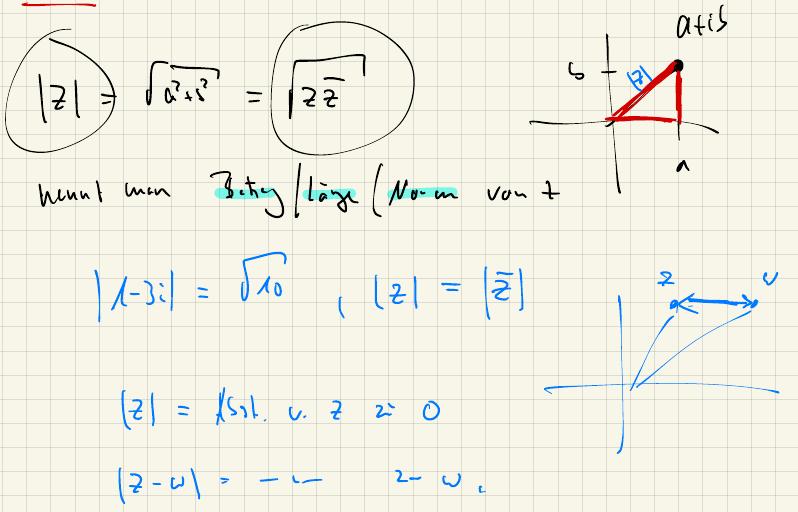 |z| = √(a²+b²) = √(z z̄)
a+ib
b
|z|
a
nennt man Betrag/Länge/Norm von z
|1-3i| = √10 , |z| = |z̄|
z w
|z| = Abst. v. z zu 0
|z-w| = —"— z- w.